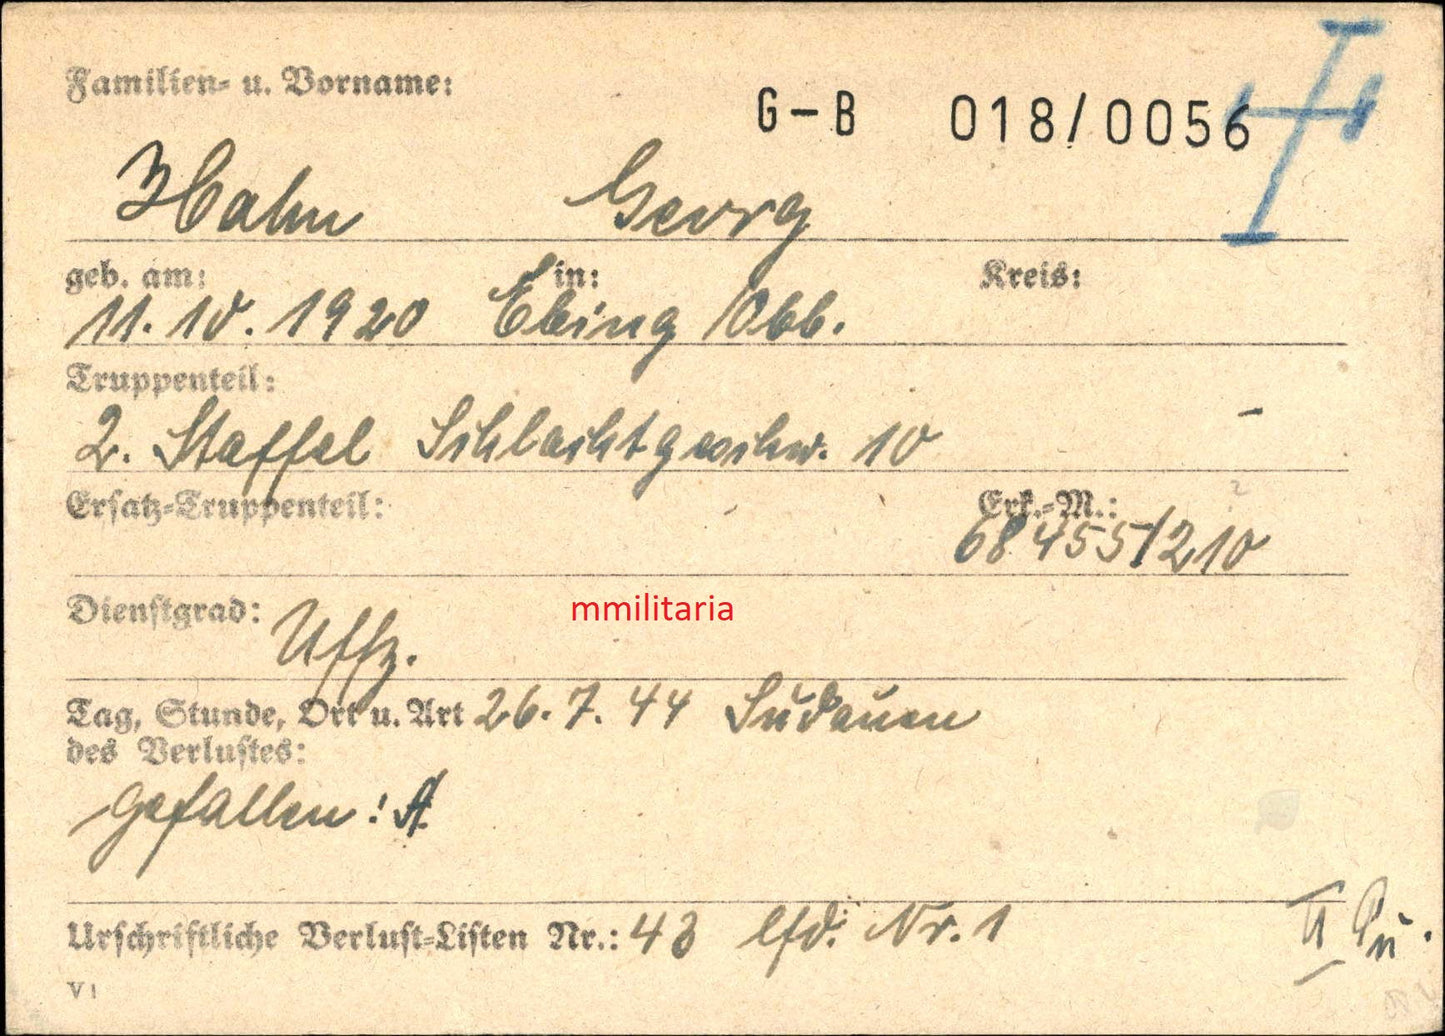 Familien- u. Vorname:
G-B 018/0056
Hahn Georg
geb. am: in: Kreis:
11.10.1920 Ebing /Obb.
Truppenteil:
2. Staffel Schlachtgeschw. 10 -
Ersatz-Truppenteil: Erk.-M.:
68455/210
Dienstgrad: Uffz.
mmilitaria
Tag, Stunde, Ort u. Art 26.7.44 Sudauen
des Verlustes:
gefallen: A
Urschriftliche Verlust-Listen Nr.: 43 lfd. Nr. 1
V1